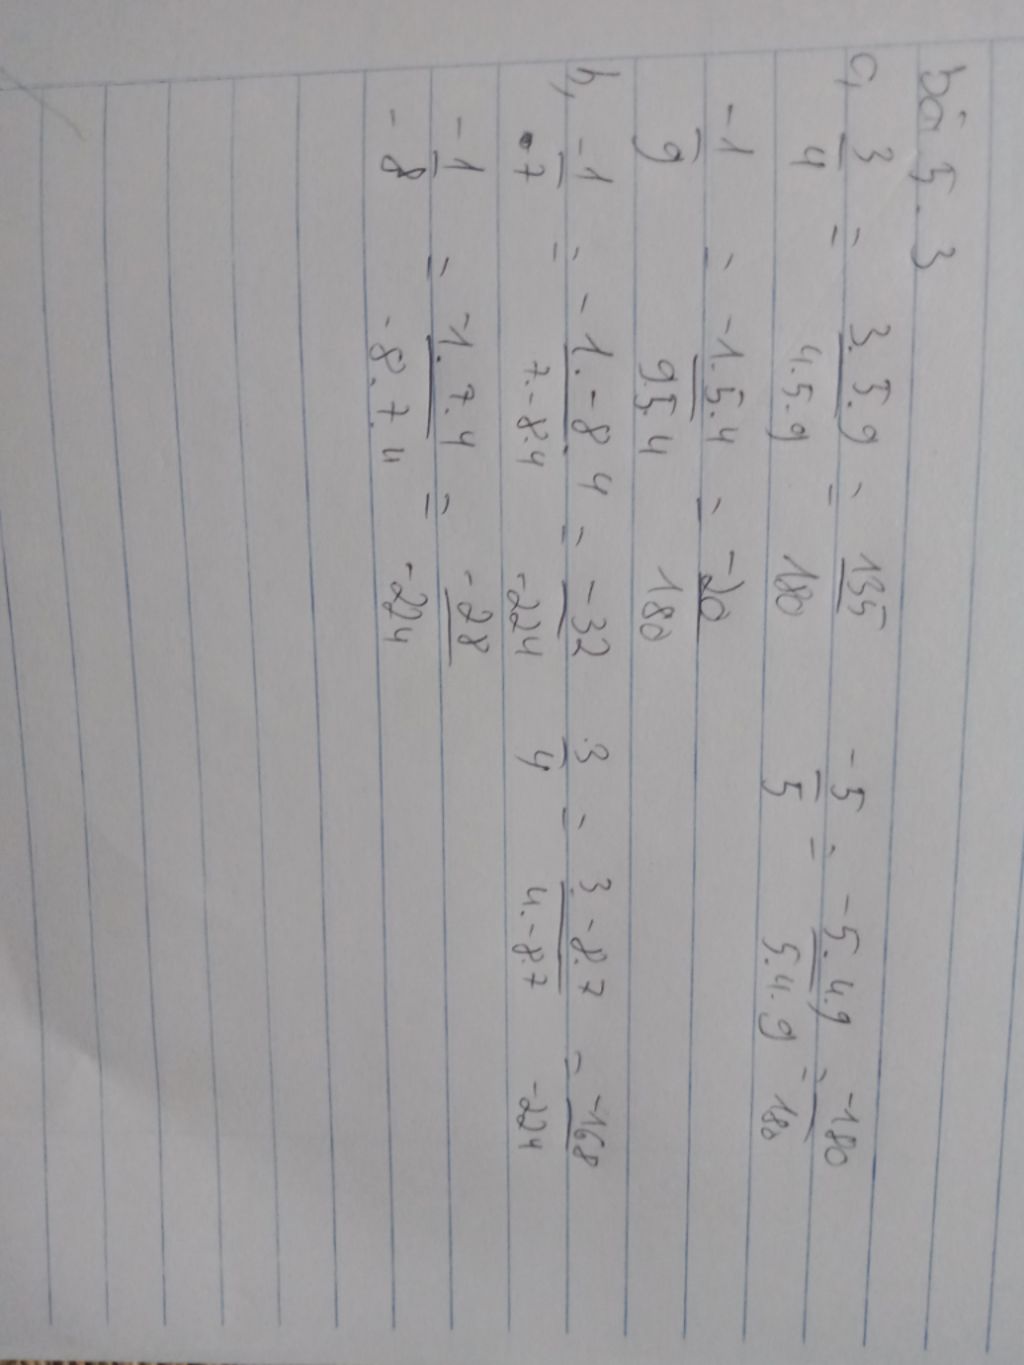 bài 5.3
a, 3/4 = 3.5.9/4.5.9 = 135/180 -5/5 = -5.4.9/5.4.9 = -180/180
-1/9 = -1.5.4/9.5.4 = -20/180
b, -1/7 = -1.-8.4/7.-8.4 = -32/-224 3/4 = 3.-8.7/4.-8.7 = -168/-224
-1/-8 = -1.7.4/-8.7.4 = -28/-224